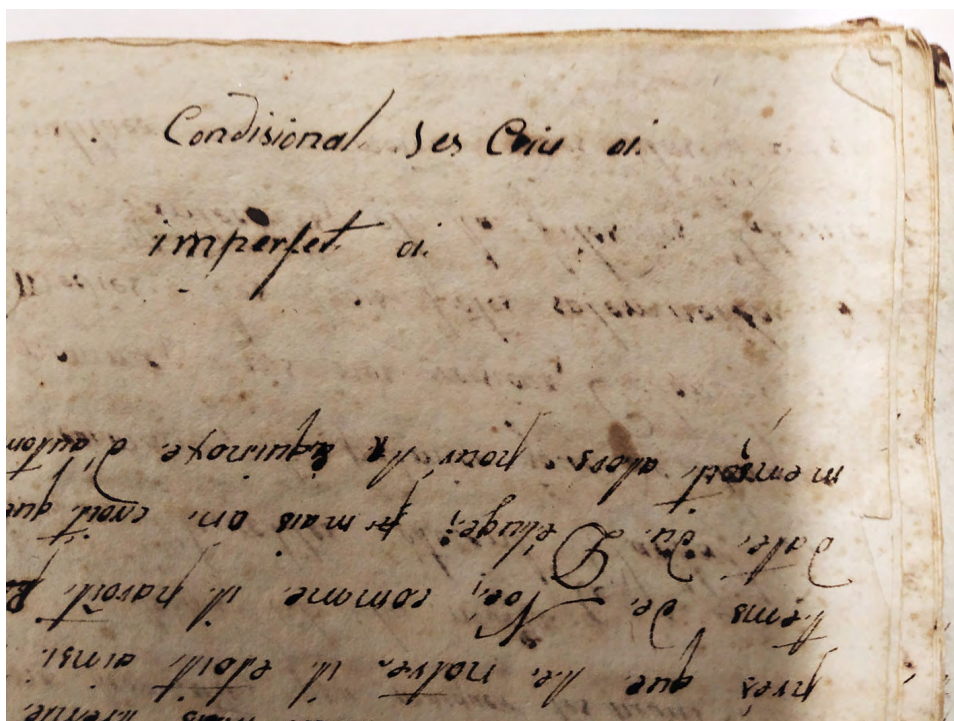 Condisional ses oi.
imperfet oi.
près que le notre. il etoit ainsi
tems de Noé, comme il paroit
date du Déluge; mais on croit que
mençoit alors pour l'équinoxe d'autom